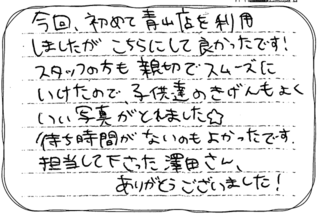 今回、初めて青山店を利用
しましたがこちらにして良かったです!
スタッフの方も親切でスムーズに
いけたので、子供達のきげんもよく
いい写真がとれました☆
待ち時間がないのもよかったです.
担当して下さった澤田さん、
ありがとうございました!